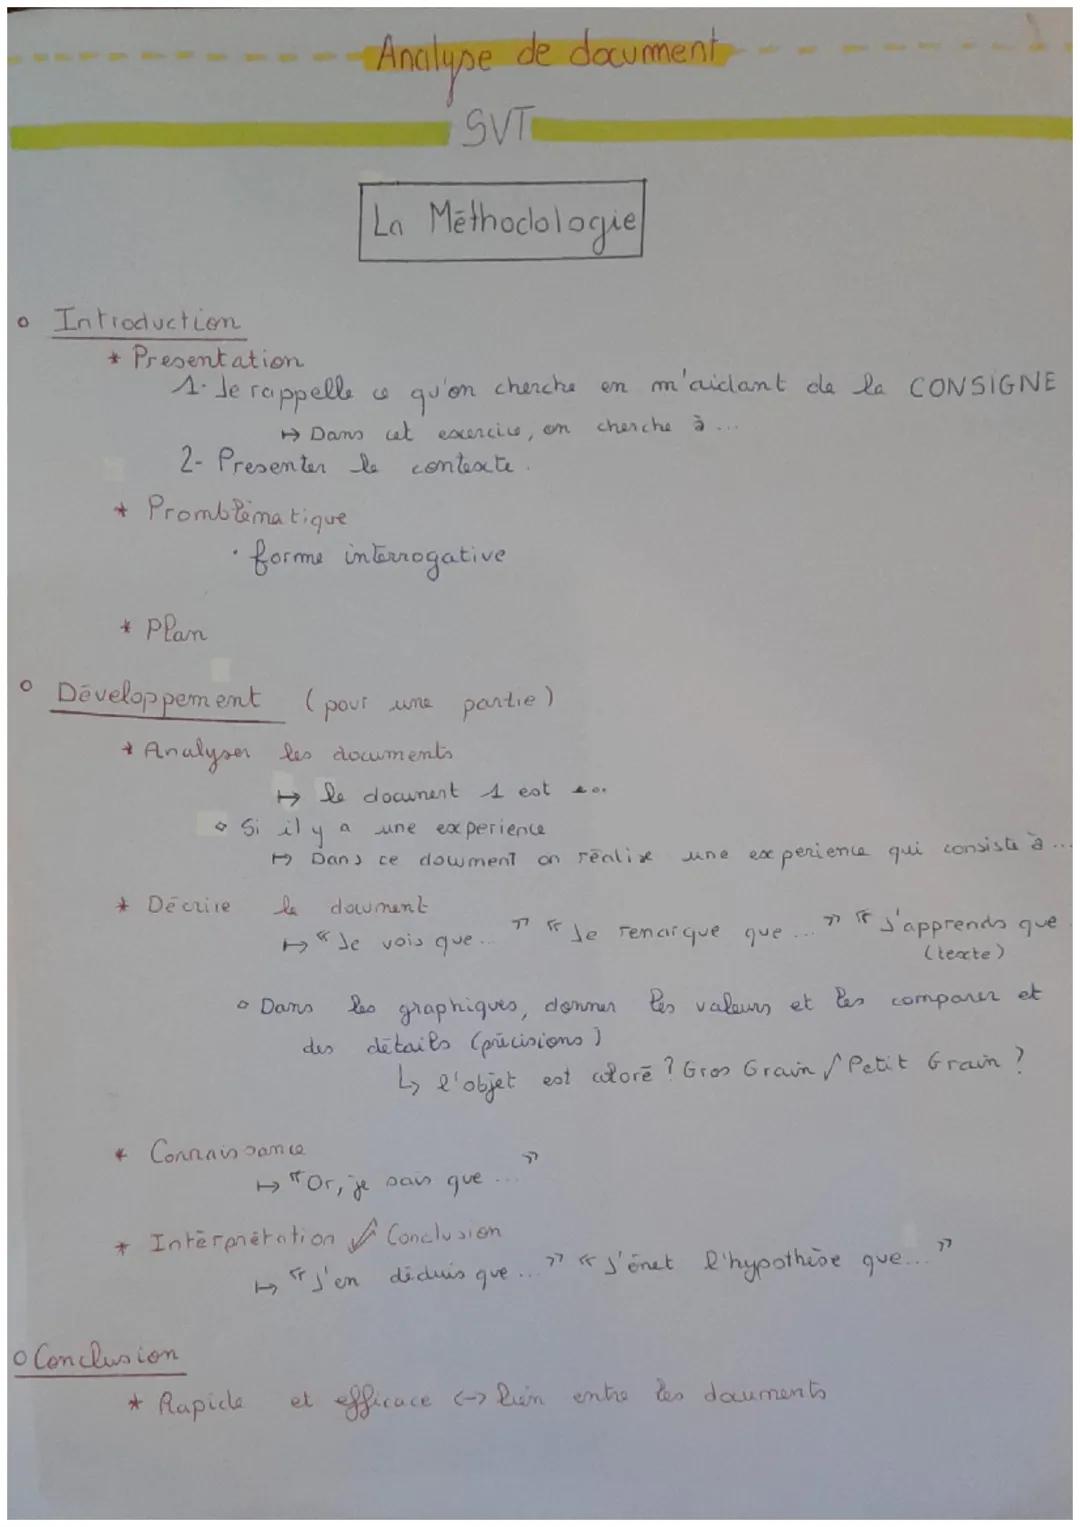 Analyse de document
SVT
La Méthodologie
o Introduction
* Presentation
1- Je rappelle ce qu'on cherche en m'aidant de la CONSIGNE
↦ Dans cet exercice, on cherche à ...
2- Presenter le contexte.
* Promblématique
· forme interrogative
* Plan
o Développement (pour une partie)
* Analyser les documents
↦ le document 1 est ...
⋄ Si il y a une experience
↦ Dans ce document on réalise une experience qui consiste à ...
* Décrire le document
↦ "Je vois que..." "Je remarque que..." "J'apprends que
(texte)
o Dans les graphiques, donner les valeurs et les comparer et
des détails (précisions)
↳ l'objet est coloré ? Gros Grain / Petit Grain ?
* Connaissance
↦ "Or, je sais que ..."
* Interprétation / Conclusion
↦ "J'en déduis que ..." "J'émet l'hypothèse que..."
o Conclusion
* Rapide et efficace ↔ lien entre les documents